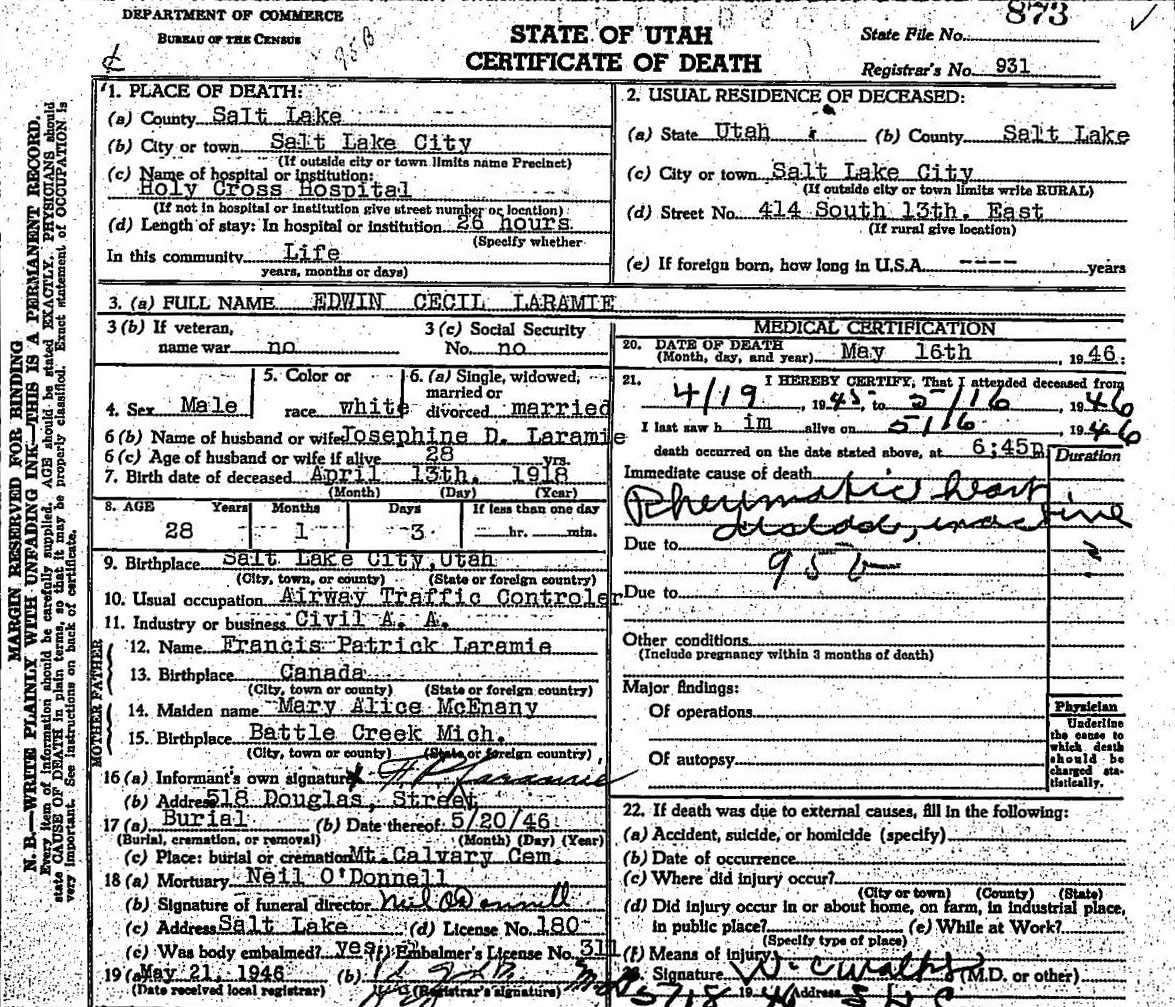 DEPARTMENT OF COMMERCE
BUREAU OF THE CENSUS
95B
STATE OF UTAH
CERTIFICATE OF DEATH
873
State File No.
Registrar's No. 931
MARGIN RESERVED FOR BINDING
N. B.—WRITE PLAINLY WITH UNFADING INK—THIS IS A PERMANENT RECORD.
Every item of information should be carefully supplied. AGE should be stated EXACTLY. PHYSICIANS should
state CAUSE OF DEATH in plain terms, so that it may be properly classified. Exact statement of OCCUPATION is
very important. See instructions on back of certificate.
1. PLACE OF DEATH:
(a) County Salt Lake
(b) City or town Salt Lake City
(If outside city or town limits name Precinct)
(c) Name of hospital or institution:
Holy Cross Hospital
(If not in hospital or institution give street number or location)
(d) Length of stay: In hospital or institution 26 hours
(Specify whether
In this community Life
years, months or days)
2. USUAL RESIDENCE OF DECEASED:
(a) State Utah (b) County Salt Lake
(c) City or town Salt Lake City
(If outside city or town limits write RURAL)
(d) Street No. 414 South 13th. East
(If rural give location)
(e) If foreign born, how long in U.S.A. ---- years
3. (a) FULL NAME EDWIN CECIL LARAMIE
3 (b) If veteran, name war no
3 (c) Social Security No. no
4. Sex Male
5. Color or race white
6. (a) Single, widowed, married or divorced married
6 (b) Name of husband or wife Josephine D. Laramie
6 (c) Age of husband or wife if alive 28 yrs.
7. Birth date of deceased April 13th. 1918
(Month) (Day) (Year)
8. AGE Years Months Days If less than one day
28 1 3 hr. min.
9. Birthplace Salt Lake City,Utah
(City, town, or county) (State or foreign country)
10. Usual occupation Airway Traffic Controler
11. Industry or business Civil A. A.
FATHER
12. Name Francis Patrick Laramie
13. Birthplace Canada
(City, town or county) (State or foreign country)
MOTHER
14. Maiden name Mary Alice McEnany
15. Birthplace Battle Creek Mich.
(City, town or county) (State or foreign country)
16 (a) Informant's own signature Laramie
(b) Address 518 Douglas, Street
17 (a) Burial (b) Date thereof 5/20/46
(Burial, cremation, or removal) (Month) (Day) (Year)
(c) Place: burial or cremation Mt. Calvary Cem.
18 (a) Mortuary Neil O'Donnell
(b) Signature of funeral director Neil O'Donnell
(c) Address Salt Lake (d) License No. 180
(e) Was body embalmed? yes (f) Embalmer's License No. 311
19 (a) May 21, 1946 (b)
(Date received local registrar) (Registrar's signature)
MEDICAL CERTIFICATION
20. DATE OF DEATH
(Month, day, and year) May 16th , 1946.
21. I HEREBY CERTIFY, That I attended deceased from
4/19 , 1945, to 5/16 , 1946
I last saw h im alive on 5/16 , 1946
death occurred on the date stated above, at 6;45p
Duration
Immediate cause of death
Rheumatic heart
disease, inactive
?
Due to 95b
Due to
Other conditions
(Include pregnancy within 3 months of death)
Major findings:
Of operations
Of autopsy
Physician
Underline
the cause to
which death
should be
charged sta-
tistically.
22. If death was due to external causes, fill in the following:
(a) Accident, suicide, or homicide (specify)
(b) Date of occurrence
(c) Where did injury occur?
(City or town) (County) (State)
(d) Did injury occur in or about home, on farm, in industrial place,
in public place? (e) While at Work?
(Specify type of place)
(f) Means of injury
Signature (M.D. or other)
5/18 1946 Address S L C